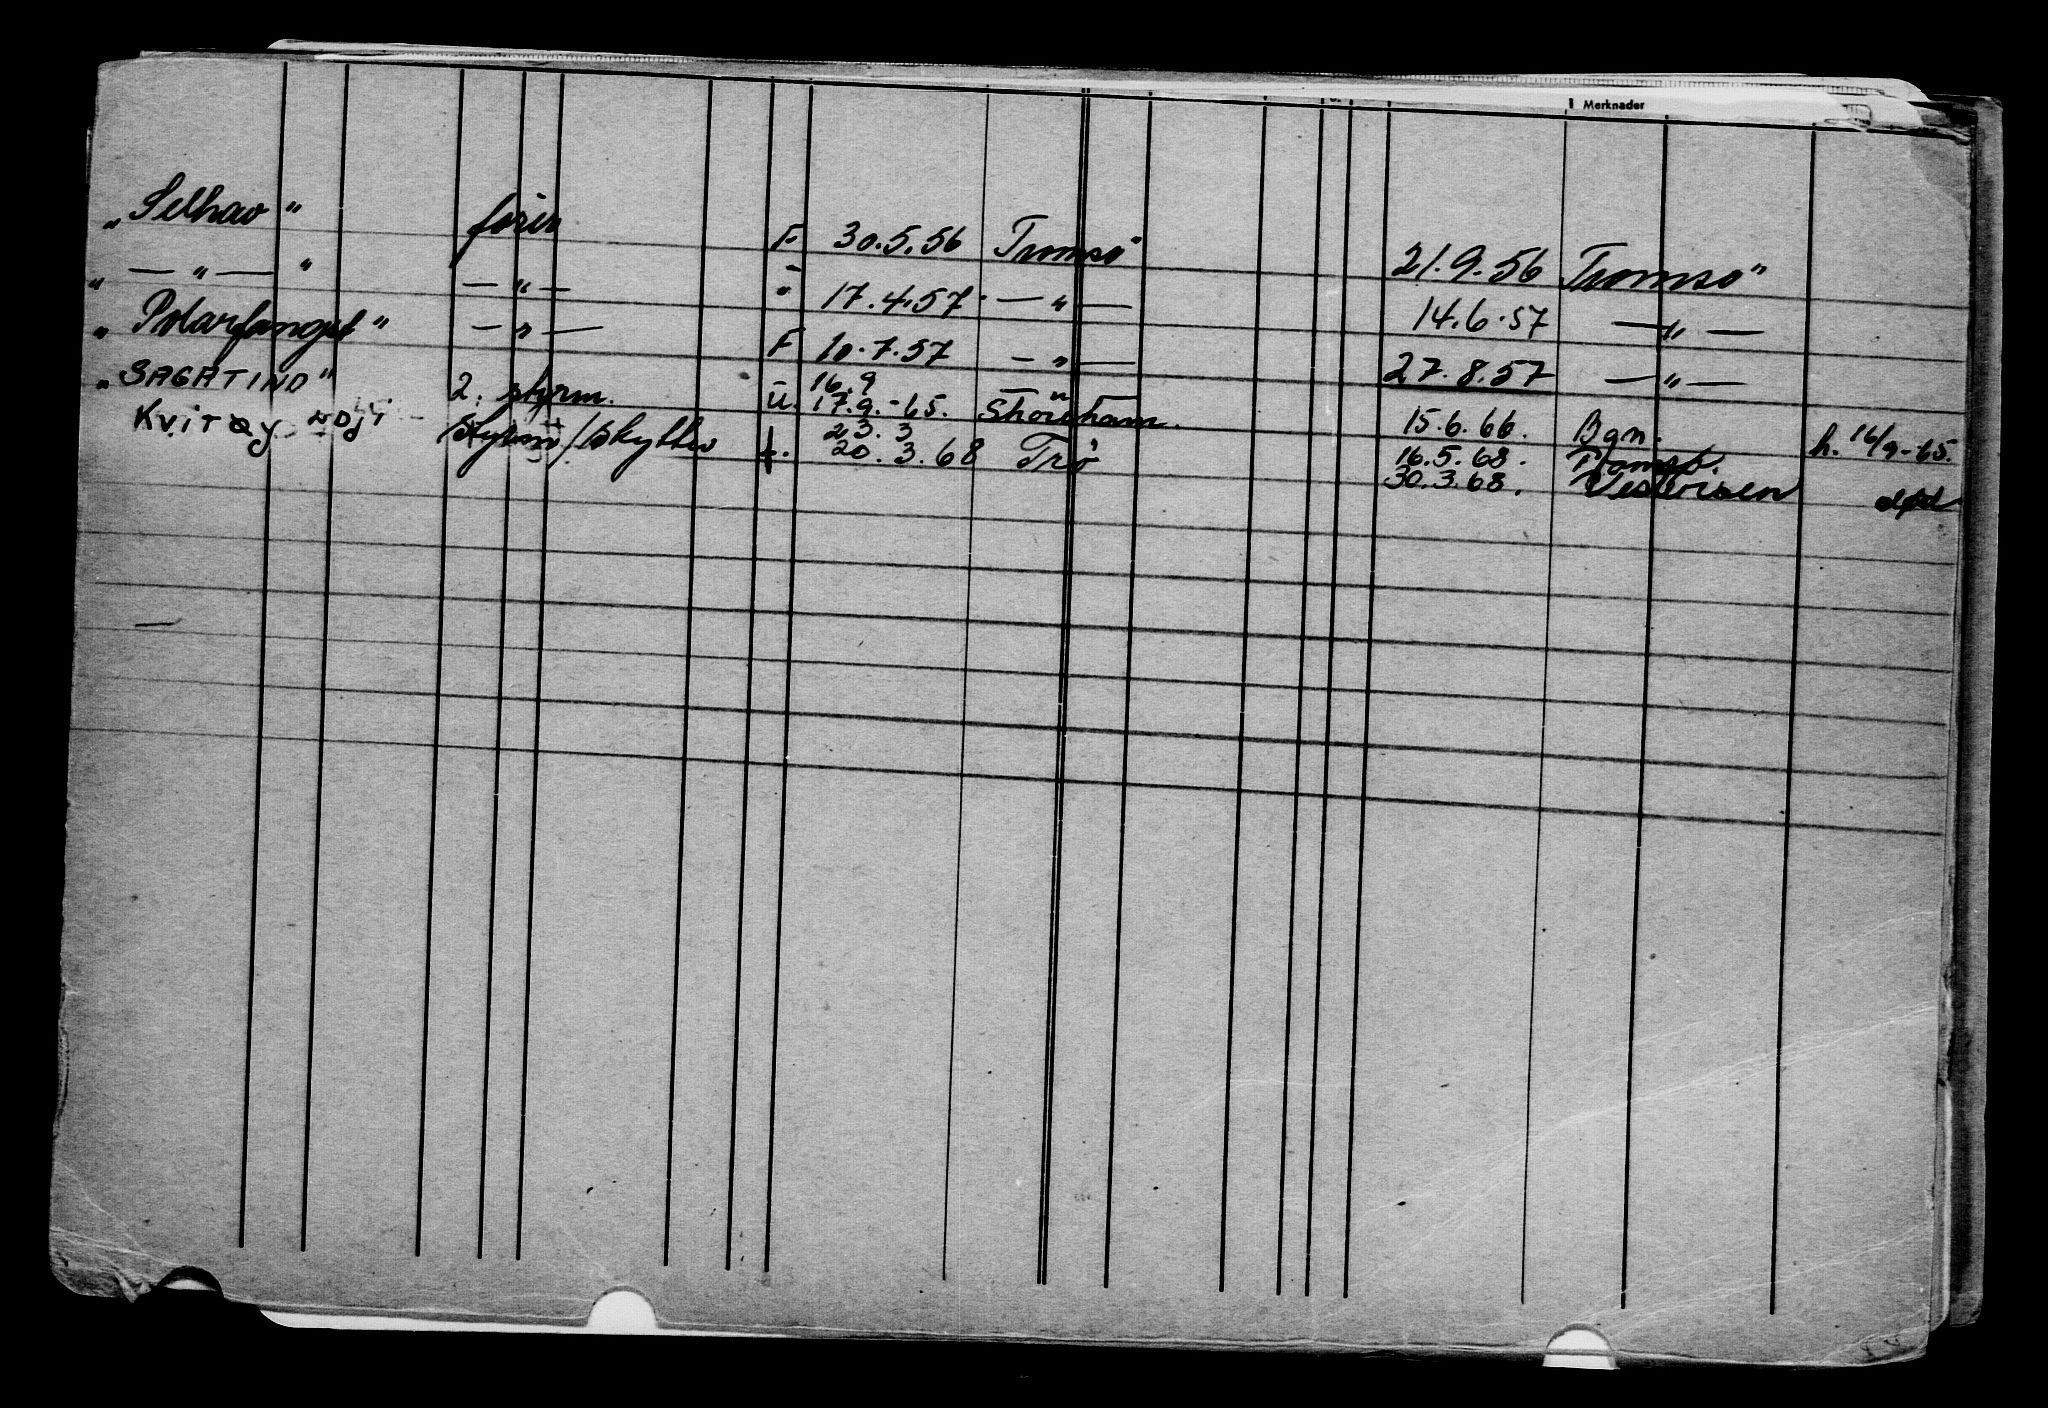 Merknader
„Selhav" fører F 30.5.56 Tromsø 21.9.56 Tromsø
„ — „ — " — „ — " 17.4.57. — „ — 14.6.57 — „ —
„Polarfangst" — „ — F 10.7.57 — „ — 27.8.57 — „ —
„SAGATIND" 2. styrm. u. 16.9 17.9.-65. Shoreham. 15.6.66. Bgn. h. 16/9-65.
Kvitøy styrm/skytter f. 23.3 20.3.68 Trø 16.5.68. Tromsø.
30.3.68. Vestisen død